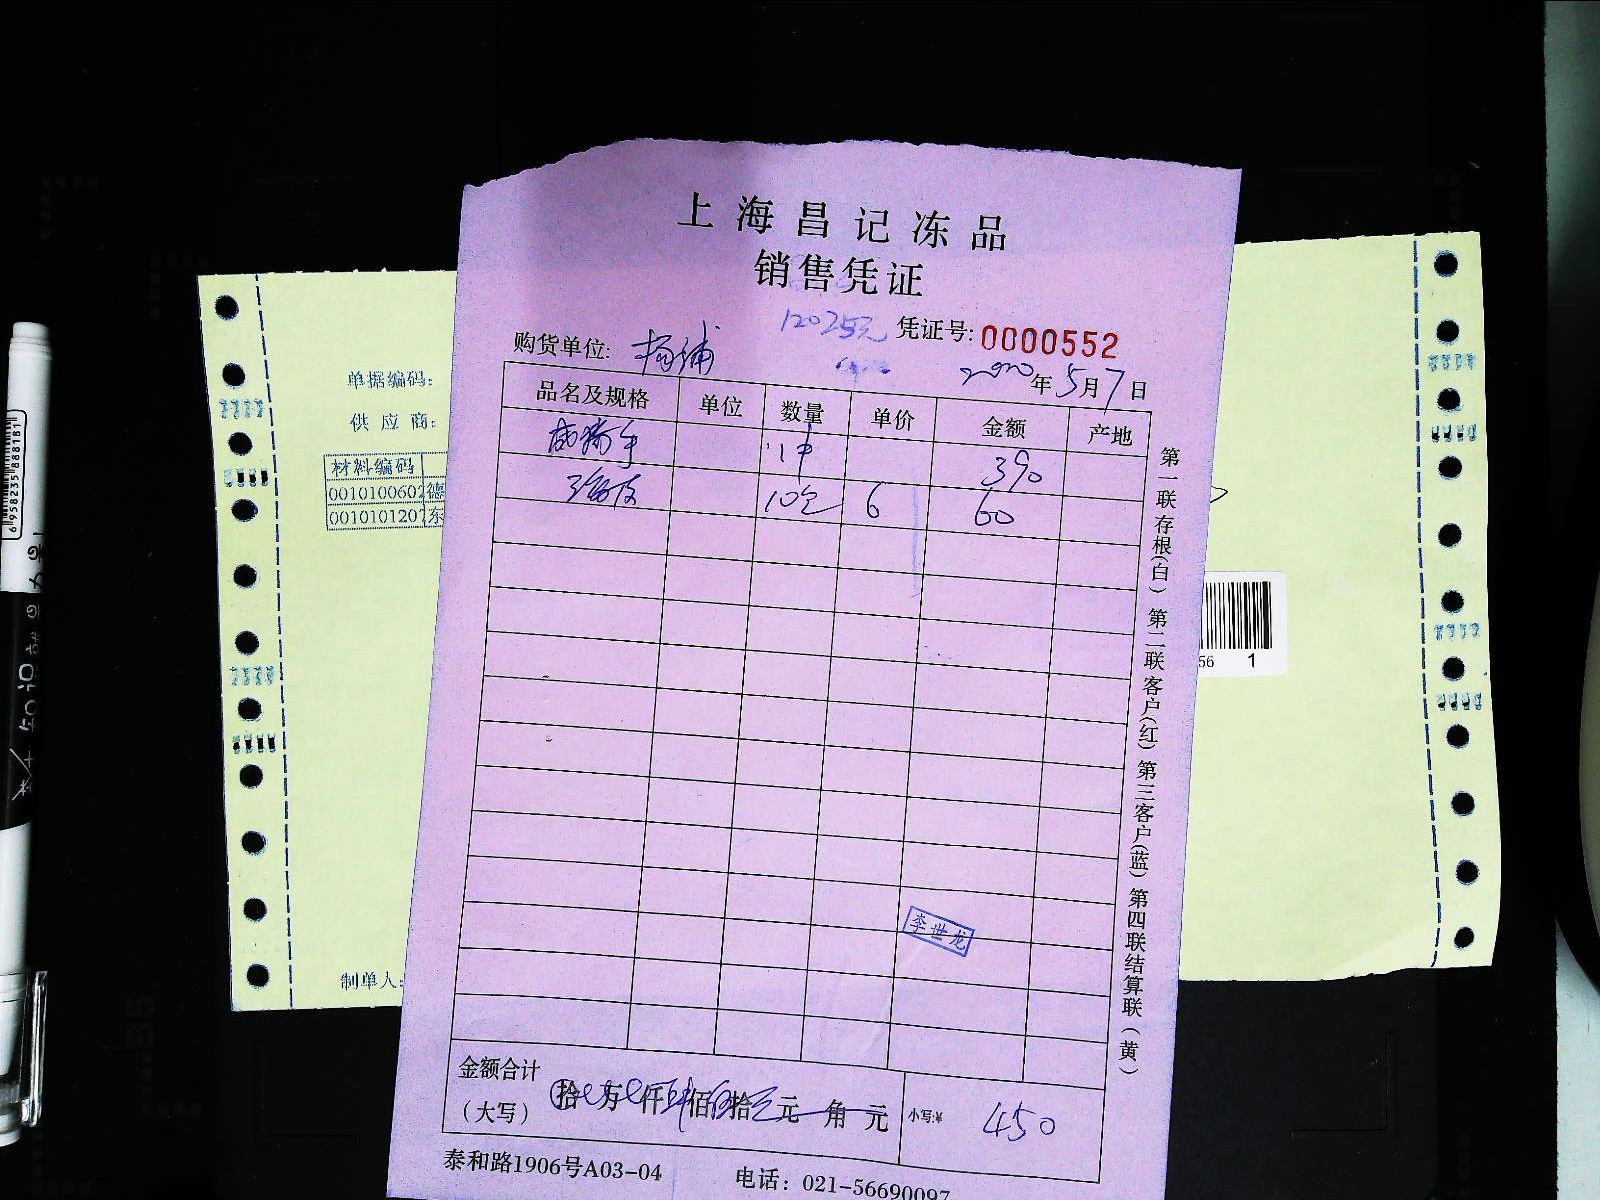 上海昌记冻品
销售凭证
12025元 凭证号: 0000552
购货单位: 杨浦
2020年5月7日
品名及规格 单位 数量 单价 金额 产地
1件 390
10包 6 60
李世龙
金额合计
(大写) 拾 万 仟 肆佰伍拾 元 角 元 小写:¥ 450
泰和路1906号A03-04 电话: 021-56690097
第一联存根(白) 第二联客户(红) 第三客户(蓝) 第四联结算联(黄)
单据编码:
供 应 商:
材料编码
制单人:
56 1
6 958235 888181